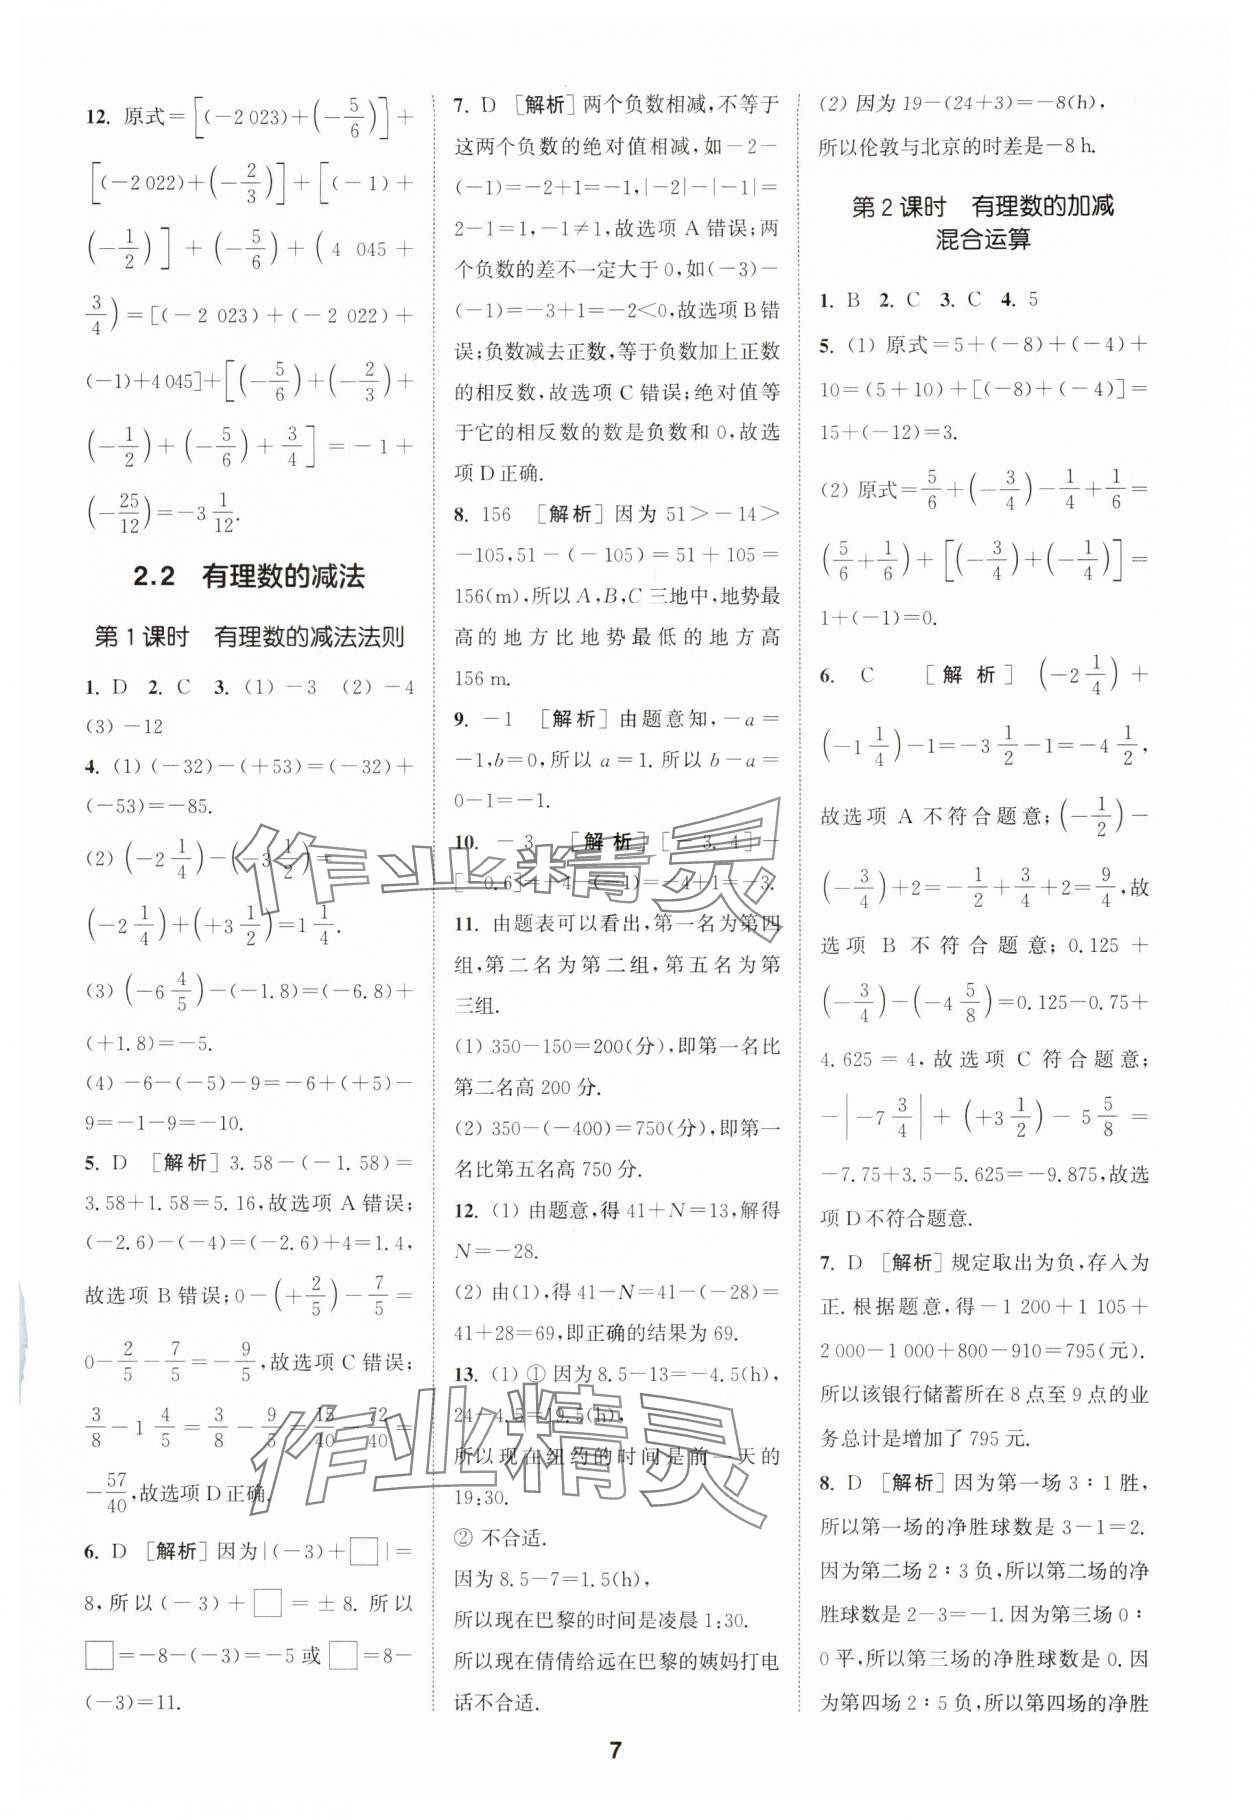 12. 原式=[(-2 023)+(-5/6)]+
[(-2 022)+(-2/3)]+[(-1)+
(-1/2)]+(-5/6)+(4 045+
3/4)=[(-2 023)+(-2 022)+
(-1)+4 045]+[(-5/6)+(-2/3)+
(-1/2)+(-5/6)+3/4]=-1+
(-25/12)=-3 1/12.
2.2 有理数的减法
第1课时 有理数的减法法则
1. D 2. C 3. (1) -3 (2) -4
(3) -12
4. (1) (-32)-(+53)=(-32)+
(-53)=-85.
(2) (-2 1/4)-(-3 1/2)=
(-2 1/4)+(+3 1/2)=1 1/4.
(3) (-6 4/5)-(-1.8)=(-6.8)+
(+1.8)=-5.
(4) -6-(-5)-9=-6+(+5)-
9=-1-9=-10.
5. D [解析]3.58-(-1.58)=
3.58+1.58=5.16,故选项A错误;
(-2.6)-(-4)=(-2.6)+4=1.4,
故选项B错误;0-(+2/5)-7/5=
0-2/5-7/5=-9/5,故选项C错误;
3/8-1 4/5=3/8-9/5=15/40-72/40=
-57/40,故选项D正确.
6. D [解析]因为|(-3)+□|=
8,所以(-3)+□=±8.所以
□=-8-(-3)=-5或□=8-
(-3)=11.
7. D [解析]两个负数相减,不等于
这两个负数的绝对值相减,如-2-
(-1)=-2+1=-1,|-2|-|-1|=
2-1=1,-1≠1,故选项A错误;两
个负数的差不一定大于0,如(-3)-
(-1)=-3+1=-2<0,故选项B错
误;负数减去正数,等于负数加上正数
的相反数,故选项C错误;绝对值等
于它的相反数的数是负数和0,故选
项D正确.
8. 156 [解析]因为51>-14>
-105,51-(-105)=51+105=
156(m),所以A,B,C三地中,地势最
高的地方比地势最低的地方高
156 m.
9. -1 [解析]由题意知,-a=
-1,b=0,所以a=1.所以b-a=
0-1=-1.
10. -3 [解析][-3.4]-
[-0.6]=-4-(-1)=-4+1=-3.
11. 由题表可以看出,第一名为第四
组,第二名为第二组,第五名为第
三组.
(1) 350-150=200(分),即第一名比
第二名高200分.
(2) 350-(-400)=750(分),即第一
名比第五名高750分.
12. (1) 由题意,得41+N=13,解得
N=-28.
(2) 由(1),得41-N=41-(-28)=
41+28=69,即正确的结果为69.
13. (1) ① 因为8.5-13=-4.5(h),
24-4.5=19.5(h),
所以现在纽约的时间是前一天的
19:30.
② 不合适.
因为8.5-7=1.5(h),
所以现在巴黎的时间是凌晨1:30.
所以现在倩倩给远在巴黎的姨妈打电
话不合适.
(2) 因为19-(24+3)=-8(h),
所以伦敦与北京的时差是-8 h.
第2课时 有理数的加减
混合运算
1. B 2. C 3. C 4. 5
5. (1) 原式=5+(-8)+(-4)+
10=(5+10)+[(-8)+(-4)]=
15+(-12)=3.
(2) 原式=5/6+(-3/4)-1/4+1/6=
(5/6+1/6)+[(-3/4)+(-1/4)]=
1+(-1)=0.
6. C [解析](-2 1/4)+
(-1 1/4)-1=-3 1/2-1=-4 1/2,
故选项A不符合题意;(-1/2)-
(-3/4)+2=-1/2+3/4+2=9/4,故
选项B不符合题意;0.125+
(-3/4)-(-4 5/8)=0.125-0.75+
4.625=4,故选项C符合题意;
-|-7 3/4|+(+3 1/2)-5 5/8=
-7.75+3.5-5.625=-9.875,故选
项D不符合题意.
7. D [解析]规定取出为负,存入为
正.根据题意,得-1 200+1 105+
2 000-1 000+800-910=795(元).
所以该银行储蓄所在8点至9点的业
务总计是增加了795元.
8. D [解析]因为第一场3:1胜,
所以第一场的净胜球数是3-1=2.
因为第二场2:3负,所以第二场的净
胜球数是2-3=-1.因为第三场0:
0平,所以第三场的净胜球数是0.因
为第四场2:5负,所以第四场的净胜
7
作业精灵
作业精灵